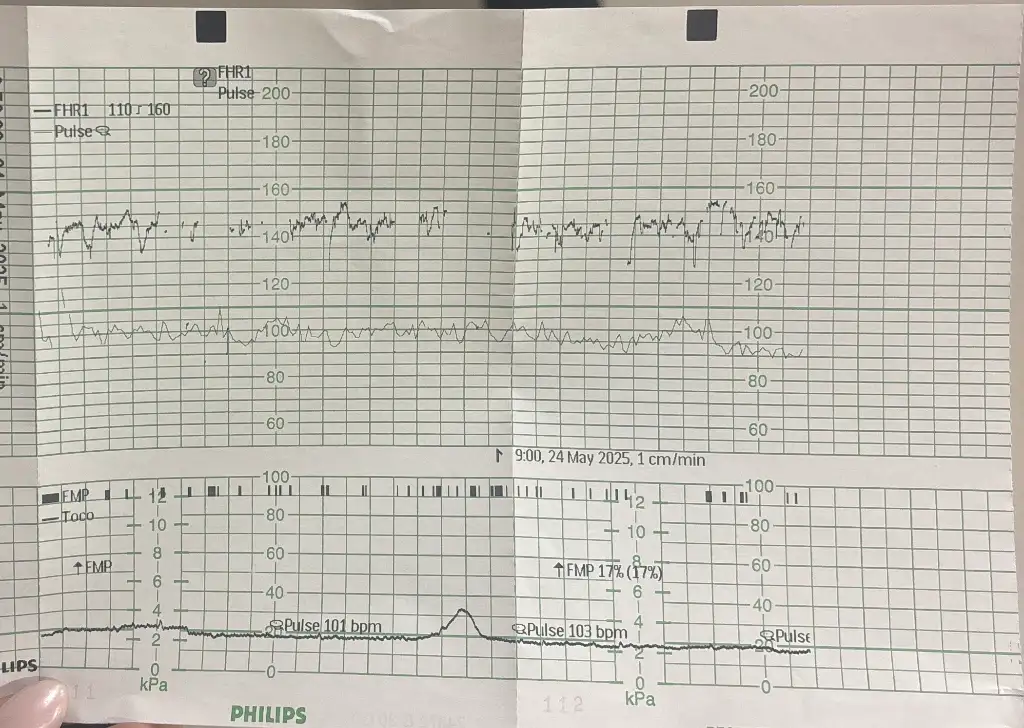 FHR1
Pulse
FHR1 110 160
Pulse
200
180
160
140
120
100
80
60
200
180
160
140
120
100
80
60
9:00, 24 May 2025, 1 cm/min
FMP
Toco
↑FMP
12
10
8
6
4
2
0
kPa
100
80
60
40
0
Pulse 101 bpm
↑FMP 17% (17%)
Pulse 103 bpm
12
10
8
6
4
2
0
kPa
100
80
60
40
20
0
Pulse
LIPS
PHILIPS
112